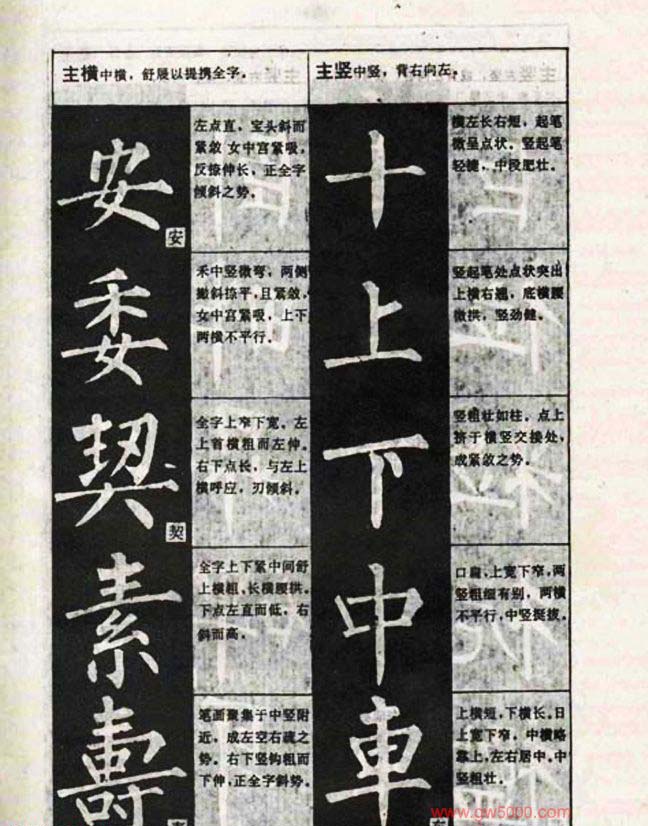 主横中横，舒展以提携全字。
安
安
左点直，宝头斜而
紧敛 女中宫紧吸，
反捺伸长，正全字
倾斜之势。
委
禾中竖微弯，两侧
撇斜捺平，且紧敛，
女中宫紧吸，上下
两横不平行。
契
契
全字上窄下宽。左
上首横粗而左伸。
右下点长，与左上
横呼应，刃倾斜。
素
全字上下紧中间舒
上横粗，长横腰拱。
下点左直而低，右
斜而高。
壽
笔画聚集于中竖附
近，成左空右疏之
势。右下竖钩粗而
下伸，正全字斜势。
主竖中竖，背右向左。
十
横左长右短，起笔
微呈点状。竖起笔
轻捷，中段肥壮。
上
竖起笔处点状突出
上横右翘，底横腰
微拱，竖劲健。
下
竖粗壮如柱。点上
挤于横竖交接处，
成紧敛之势。
中
口扁，上宽下窄，两
竖粗细有别，两横
不平行，中竖挺拔。
車
上横短，下横长。日
上宽下窄，中横略
靠上，左右居中。中
竖粗壮。
www.gw5000.com